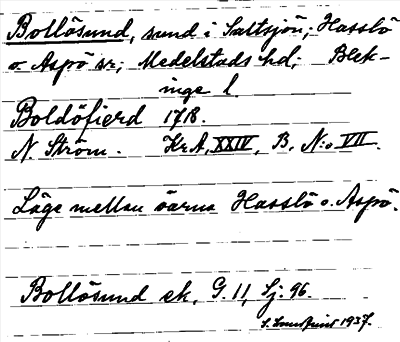 Bollösund, sund i Saltsjön; Hasslö
o. Aspö sr; Medelstads hd; Blek-
inge l.
Boldöfierd 1718.
N. Ström. KrA, XXIV, B, N:o VII.
Läge mellan öarna Hasslö o. Aspö.
Bollösund ek. G. 11, Sj: 96.
1937.